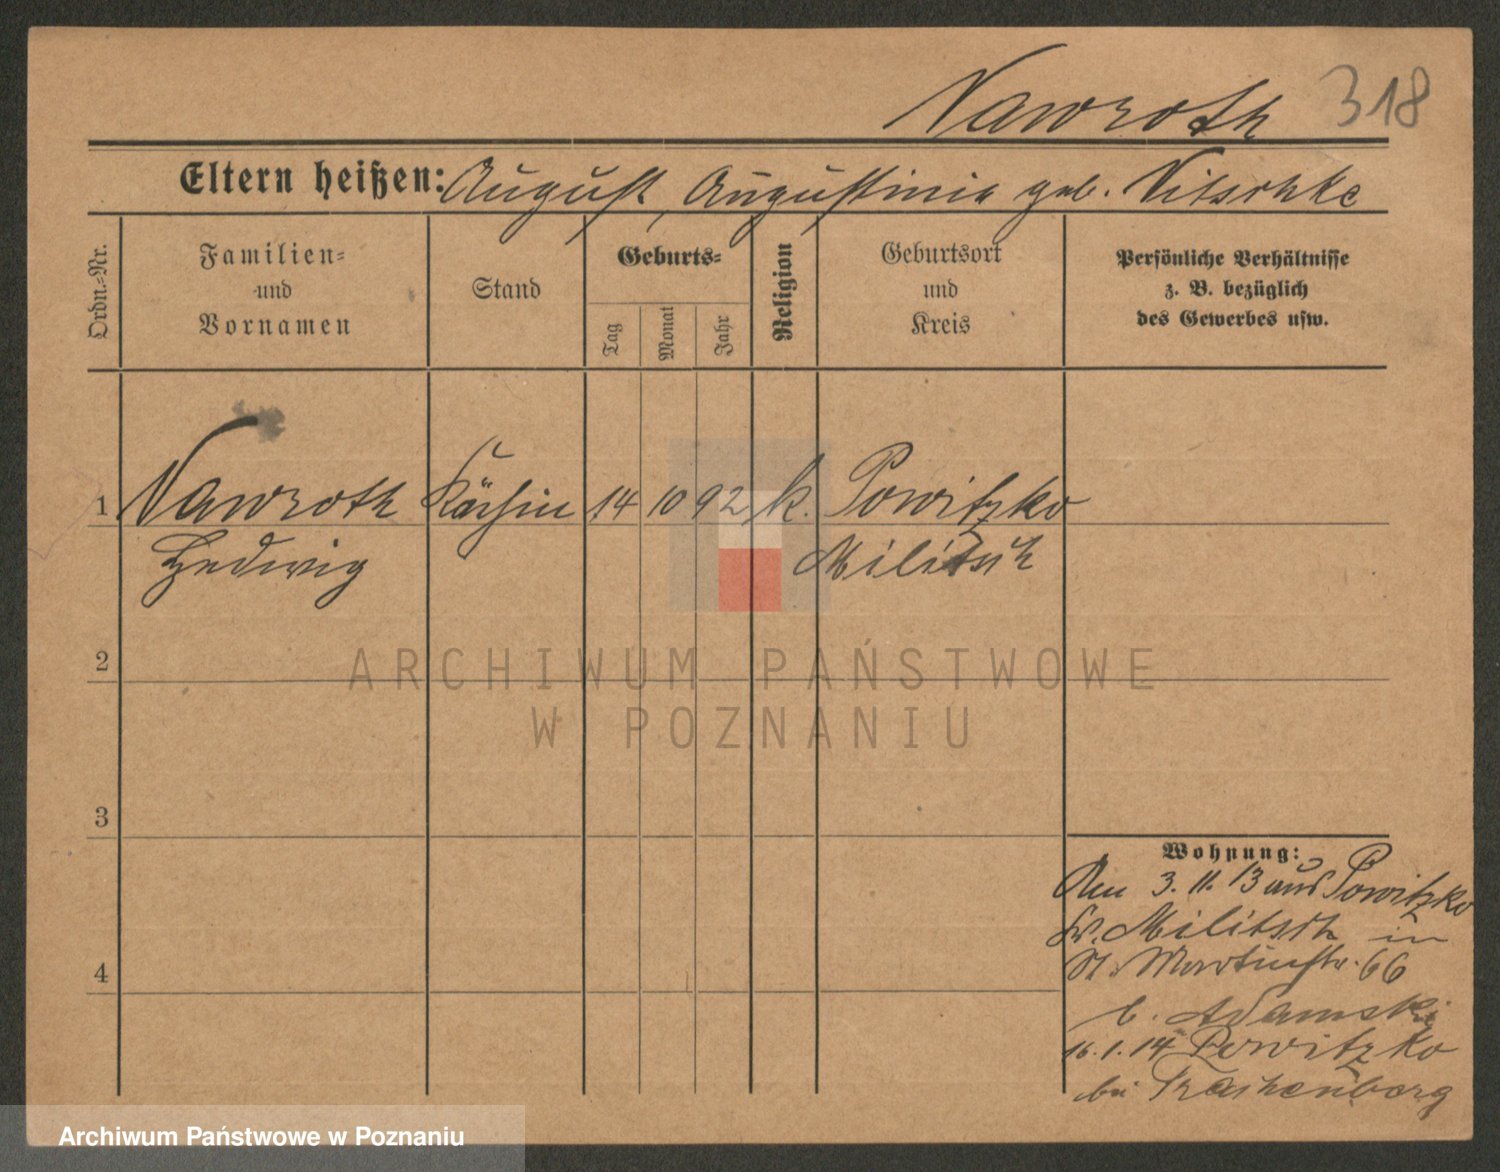 Nawroth 318
Eltern heißen: August, Augustinia geb. Nitschke
Ordn.-Nr.
Familien-
und
Vornamen
Stand
Geburts-
Tag
Monat
Jahr
Religion
Geburtsort
und
Kreis
Persönliche Verhältnisse
z. B. bezüglich
des Gewerbes usw.
1 Nawroth Köchin 14 10 92 k. Powitzko
Hedwig Militsch
2
ARCHIWUM PAŃSTWOWE
W POZNANIU
3
Wohnung:
Am 3. 11. 13 aus Powitzko
Kr. Militsch in
St. Martinstr. 66
b. Adamski
4
16. 1. 14 Powitzko
bei Trachenberg
Archiwum Państwowe w Poznaniu